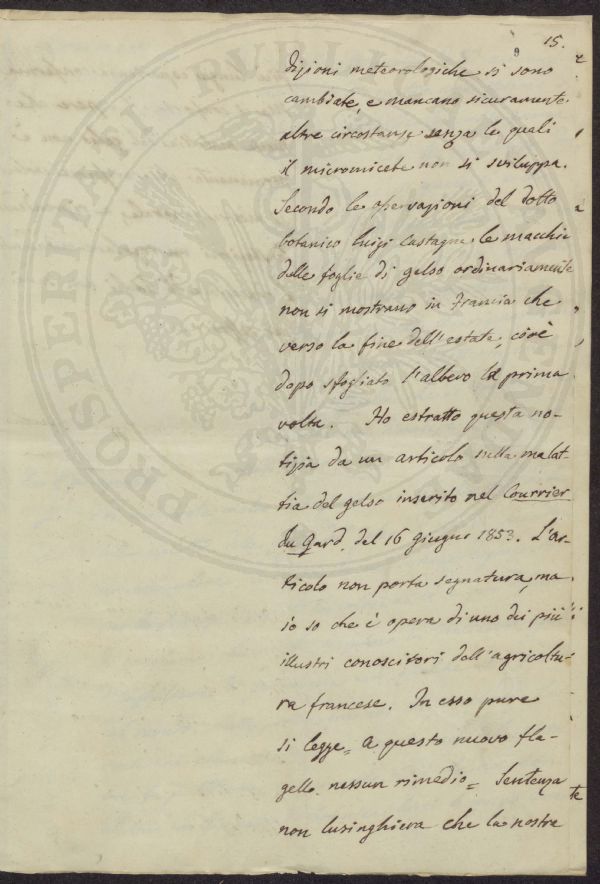 15.
dizioni meteorologiche si sono
cambiate, e mancano sicuramente
altre circostanze senza le quali
il micromicete non si sviluppa.
Secondo le osservazioni del dotto
botanico Luigi Castagne le macchie
delle foglie di gelso ordinariamente
non si mostrano in Francia che
verso la fine dell'estate, cioè
dopo sfogliato l'albero la prima
volta. Ho estratto questa no-
tizia da un articolo sulla malat-
tia del gelso inserito nel Courrier
du Gard, del 16 giugno 1853. L'ar-
ticolo non porta segnatura, ma
io so che è opera di uno dei più
illustri conoscitori dell'agricoltu-
ra francese. In esso pure
si legge = a questo nuovo fla-
gello nessun rimedio = Sentenza
non lusinghiera che la nostra
te
PROSPERITATI PUBLICAE